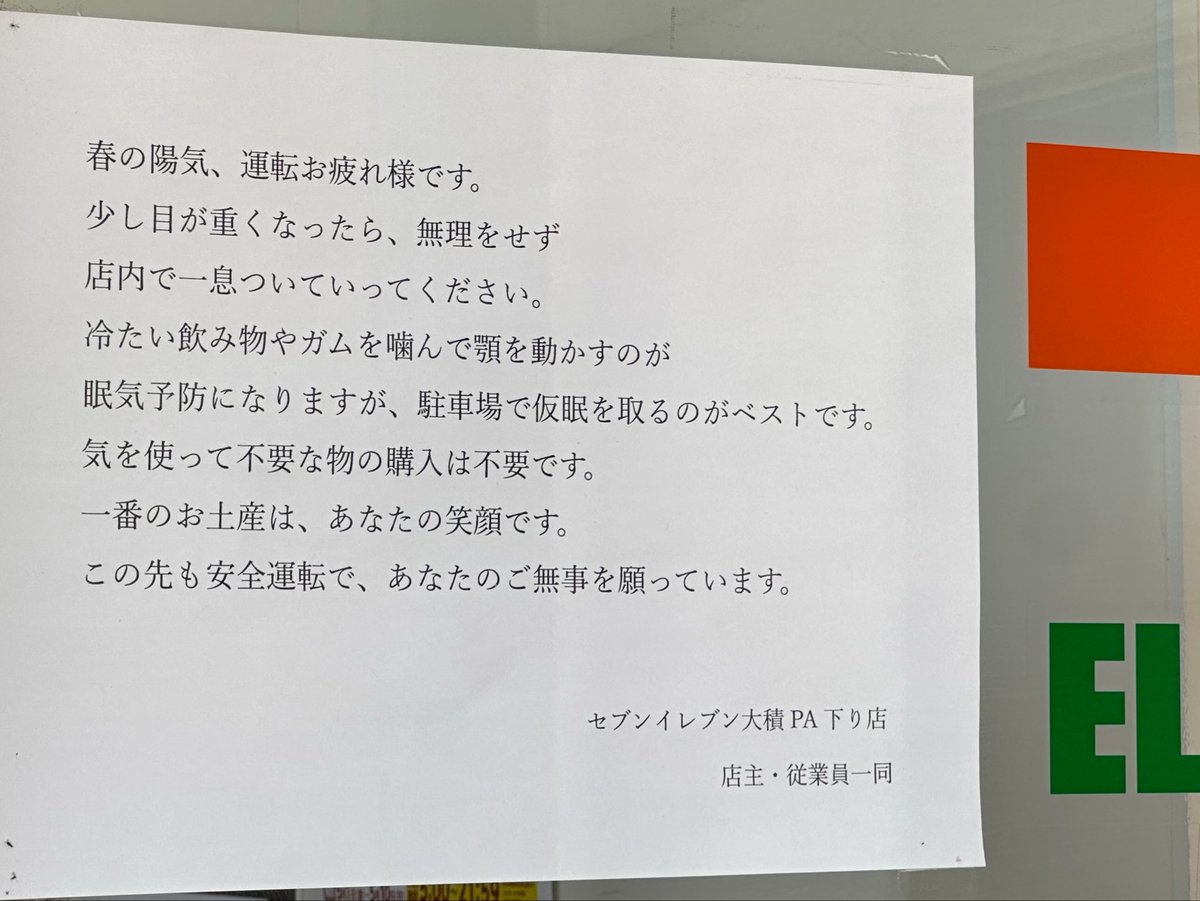 春の陽気、運転お疲れ様です。
少し目が重くなったら、無理をせず
店内で一息ついていってください。
冷たい飲み物やガムを噛んで顎を動かすのが
眠気予防になりますが、駐車場で仮眠を取るのがベストです。
気を使って不要な物の購入は不要です。
一番のお土産は、あなたの笑顔です。
この先も安全運転で、あなたのご無事を願っています。
セブンイレブン大積 PA 下り店
店主・従業員一同
EL